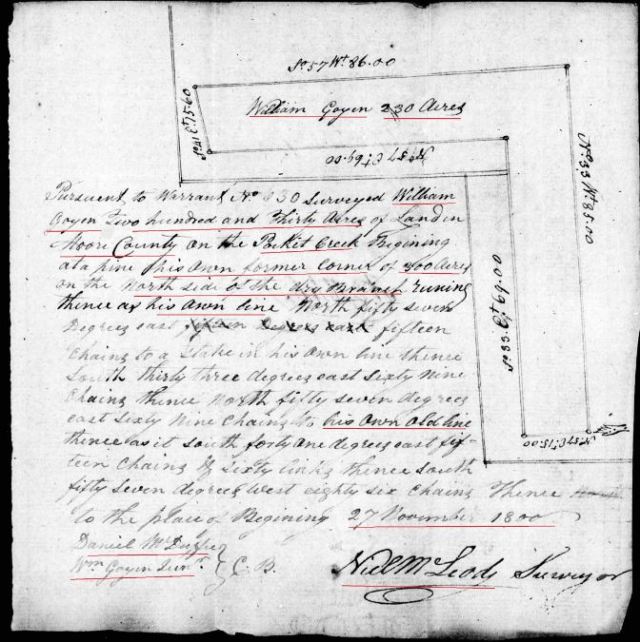 So. 57 Wt. 86.00
William Goyen 230 Acres
So. 41 Et. 15.60
No. 57 Et. 69.00
No. 33 Wt. 85.00
So. 33 Et. 69.00
No. 57 Et. 15.00
Pursuent to Warrant No. 430 Surveyed William
Goyen Two hundred and Thirty Acres of Land in
Moore County on the Pocket Creek Begining
at a pine his own former corner of 300 Acres
on the North side of the dry Branch runing
thence as his own line North fifty seven
Degrees east fifteen Degrees east fifteen
Chains to a Stake in his own line thence
South thirty three degrees east Sixty Nine
Chains thence North fifty seven degrees
east Sixty Nine Chains to his own old line
thence as it South forty one degrees east fif-
teen Chains & Sixty links thence South
fifty Seven degrees West eighty six Chains Thence
to the place of Begining 27 November 1800
Daniel McDuffie
Wm. Goyen Junr. } C. B.
Neill McLeod Surveyor